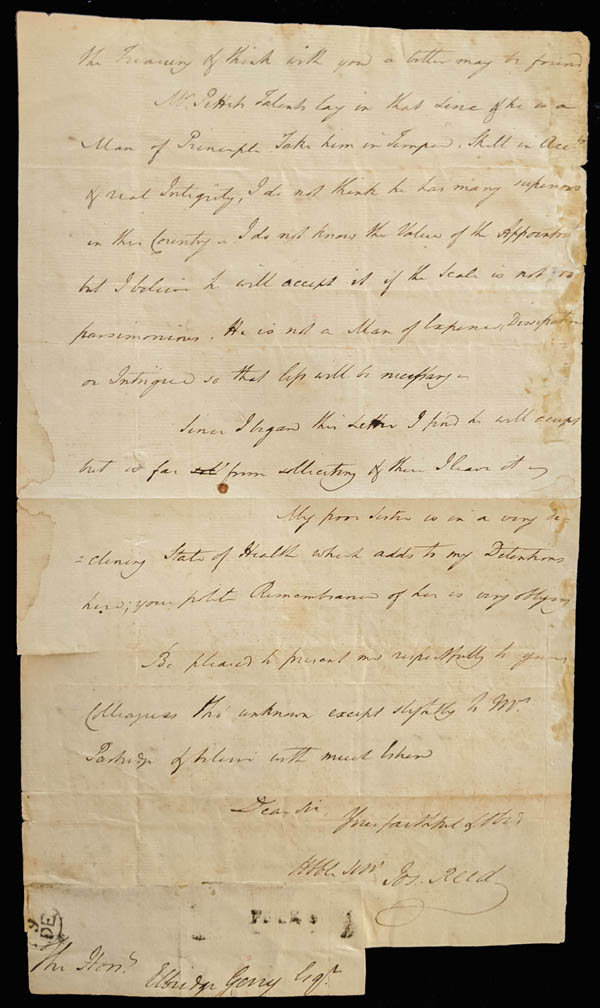 the Treasury & think with you a better may be found
Mr. Pettits Talents lay in that Line & he is a
Man of Principle Take him in Temper, Skill in Acc.ts
& real Integrity, I do not think he has many superiors
in this Country. I do not know the Value of the Appointm
but I believe he will accept it if the Scale is not
parsimonious. He is not a Man of Expence, Dissipation
or Intrigue so that less will be necessary
Since I began this Letter I find he will accept
but is far from solliciting & there I leave it
My poor Sister is in a very de
=clining State of Health which adds to my Detentions
here; your polite Remembrance of her is very obliging
Be pleased to present me respectfully to your
Colleagues tho' unknown except slightly to Mr.
Partridge & believe with much Esteem
Dear Sir, Your faithful & Obed
Hbble Serv
Jos. Reed
9
DE
FREE
The Hon.
Elbridge Gerry Esqr.